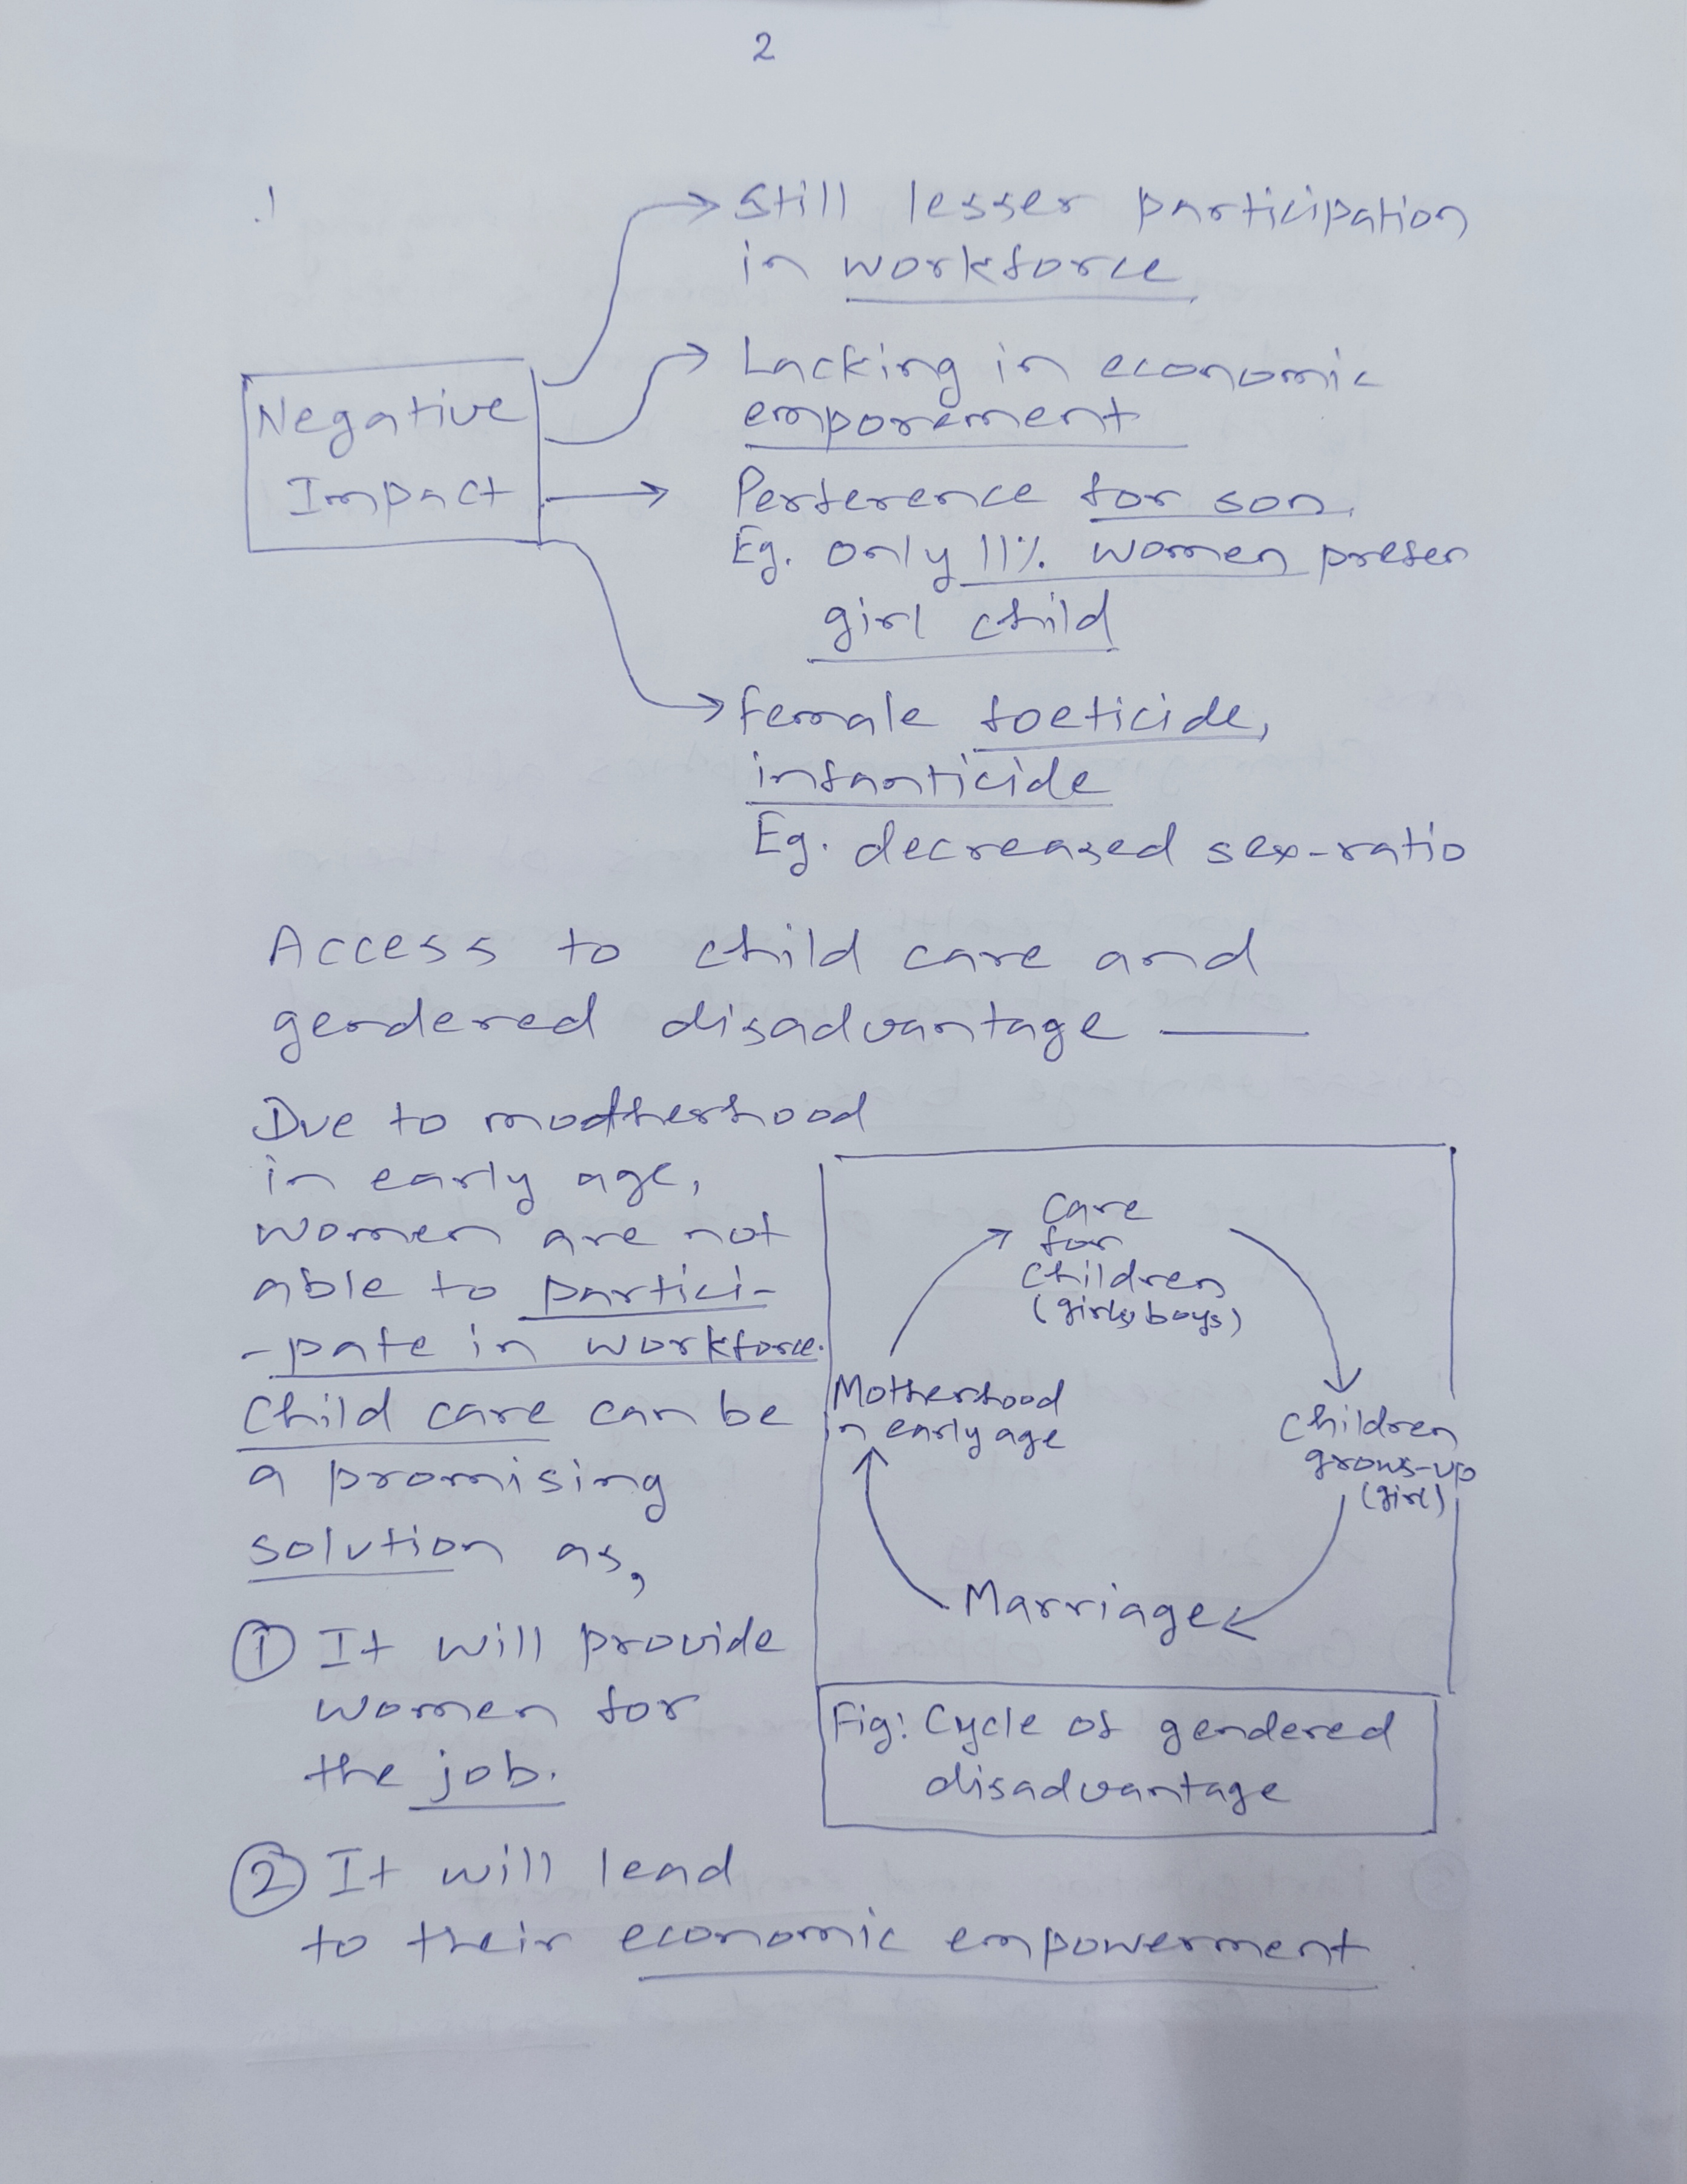 2
Still lesser participation
in workforce
Lacking in economic
emporement
Negative
Impact
Perference for son.
Eg. only 11% women prefer
girl child
female foeticide,
infanticide
Eg. decreased sex-ratio
Access to child care and
gendered disadvantage —
Due to motherhood
in early age,
women are not
able to partici-
-pate in workforce.
Child care can be
a promising
solution as,
① It will provide
women for
the job.
② It will lead
to their economic empowerment.
Care
for
children
(girls, boys)
Children
grows-up
(girl)
Marriage
Motherhood
in early age
Fig: Cycle of gendered
disadvantage